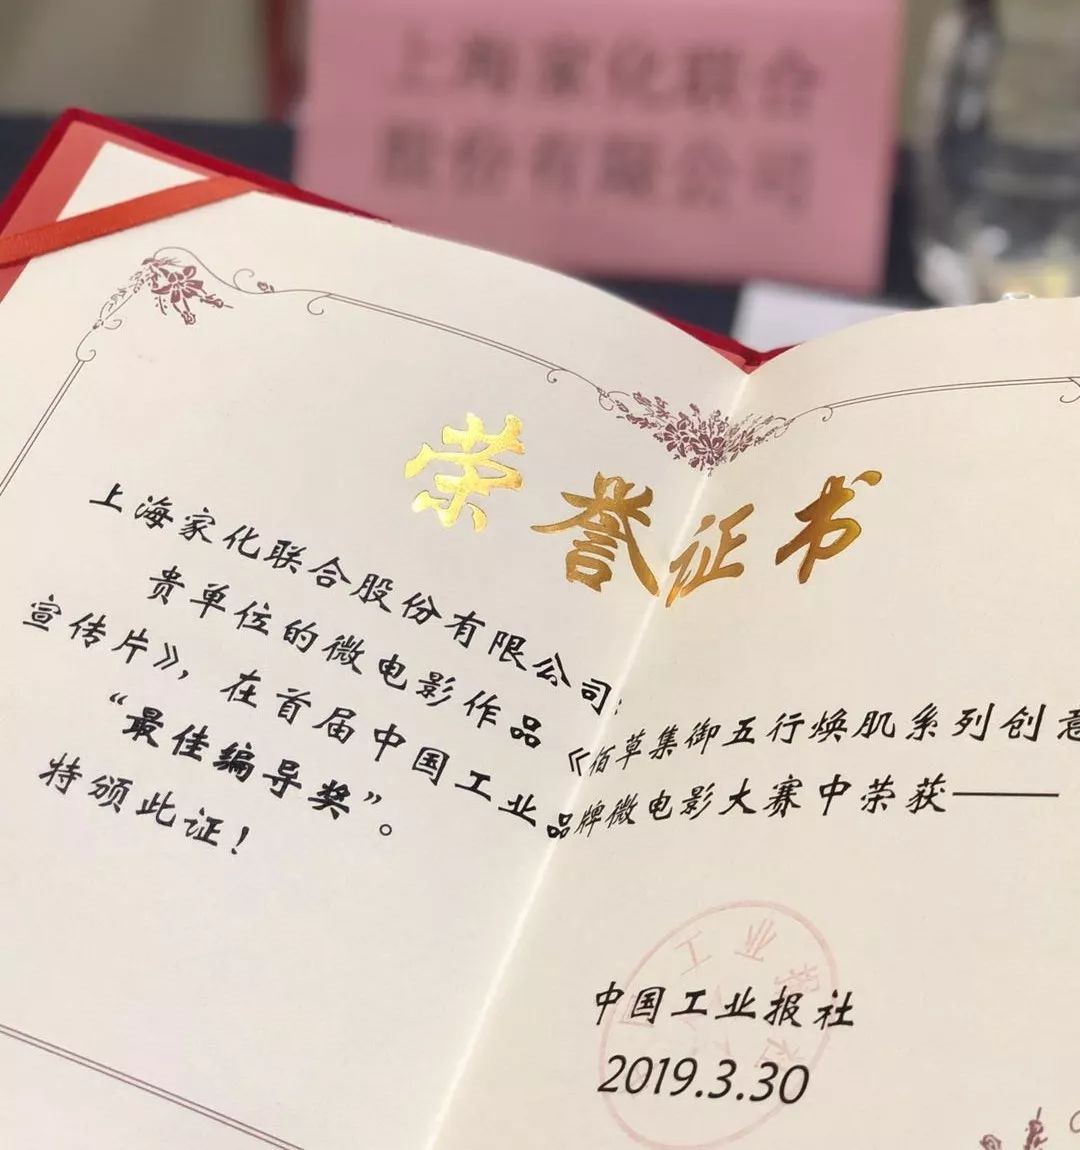 上海家化联合
股份有限公司
荣誉证书
上海家化联合股份有限公司：
贵单位的微电影作品《佰草集御五行焕肌系列创意
宣传片》，在首届中国工业品牌微电影大赛中荣获——
“最佳编导奖”。
特颁此证！
中国工业报社
2019.3.30